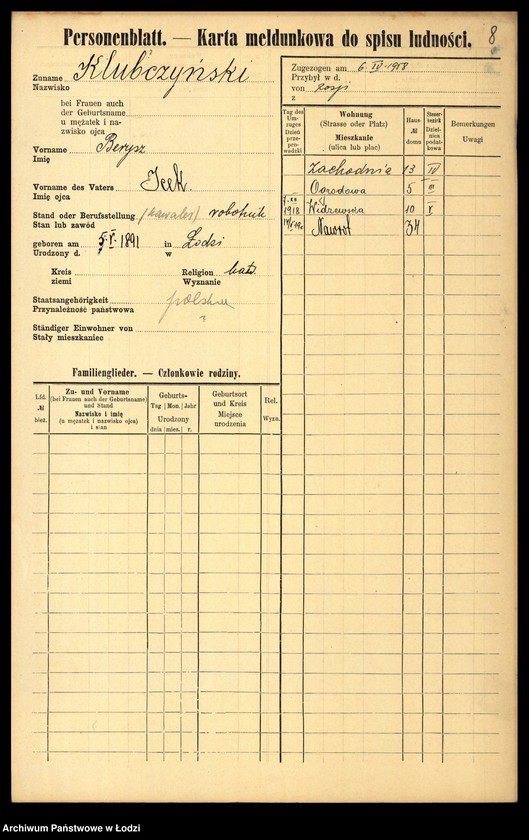 Personenblatt. — Karta meldunkowa do spisu ludności.
8
Zuname Klubczyński
Nazwisko
bei Frauen auch
der Geburtsname
u mężatek i na-
zwisko ojca
Vorname Berysz
Imię
Vorname des Vaters Icek
Imię ojca
Stand oder Berufsstellung (kawaler) robotnik
Stan lub zawód
geboren am 5.V.1891 in Łodzi
Urodzony d. w
Kreis Religion
ziemi Wyznanie
Staatsangehörigkeit polska
Przynależność państwowa ?
Ständiger Einwohner von
Stały mieszkaniec
Zugezogen am 6.IV.1918
Przybył w d.
von rosji
z
Tag des Um-zuges Dzień prze-prowadzki
Wohnung
(Strasse oder Platz)
Mieszkanie
(ulica lub plac)
Haus-
№
domu
Steuer-
bezirk
Dziel-
nica
podat-
kowa
Bemerkungen
Uwagi
Zachodnia 13 IV
Ogrodowa 5 III
1918 Widzewska 10 V
Nawrot 34
Familienglieder. — Członkowie rodziny.
Lfd.
№
bież.
Zu- und Vorname
(bei Frauen auch der Geburtsname)
und Stand
Nazwisko i imię
(u mężatek i nazwisko ojca)
i stan
Geburts-
Tag Mon. Jahr
Urodzony
dnia mies. r.
Geburtsort
und Kreis
Miejsce
urodzenia
Rel.
Wyzn.
Archiwum Państwowe w Łodzi